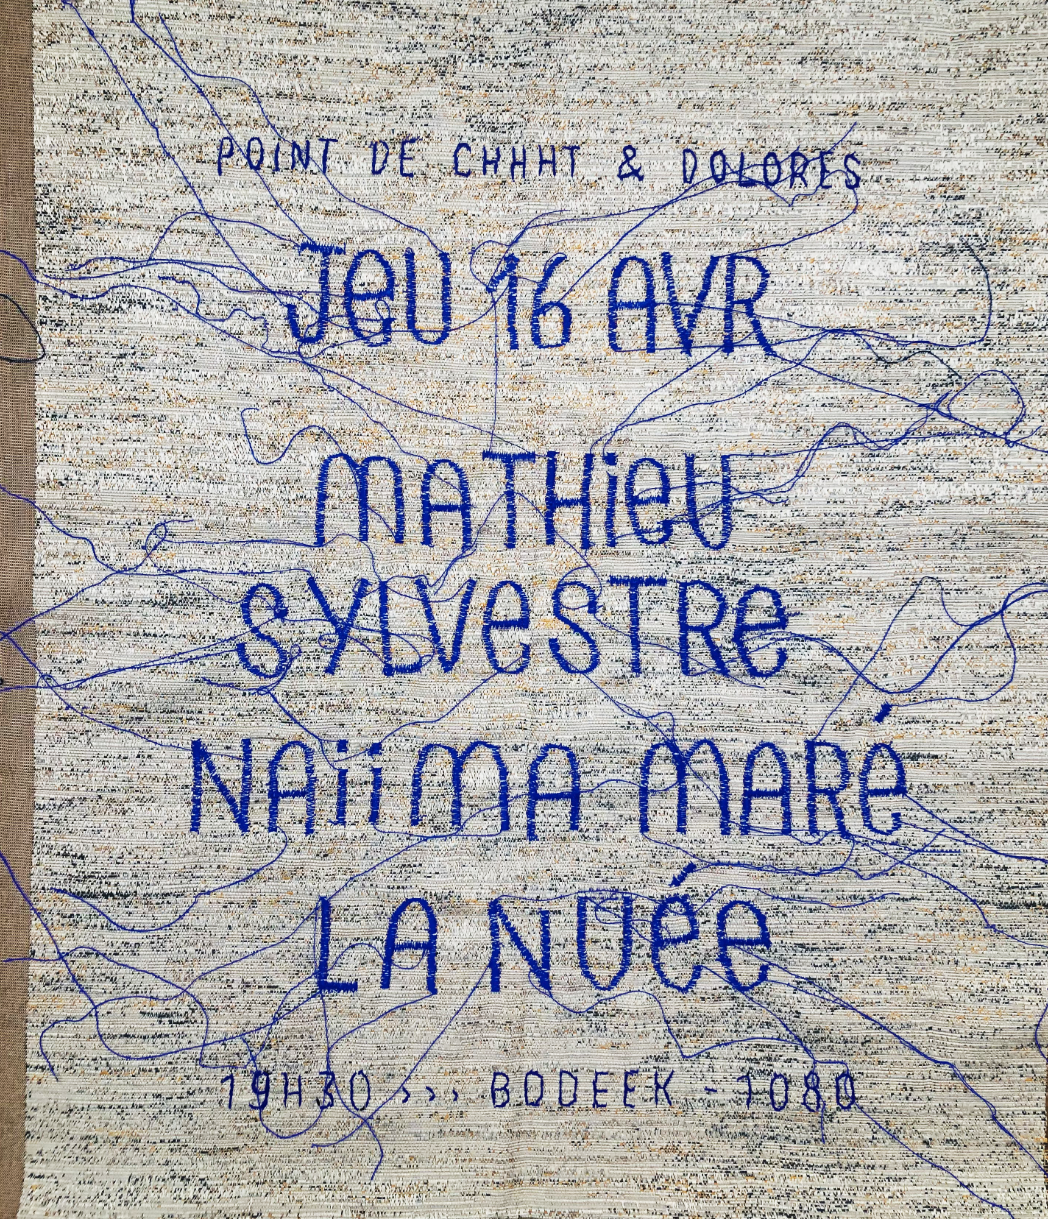 POINT DE CHHHT & DOLORES
JeU 16 AVR
MATHieU
SYLVeSTRe
NAiiMA MARé
LA NUée
19H30 >>> BODEEK - 1080